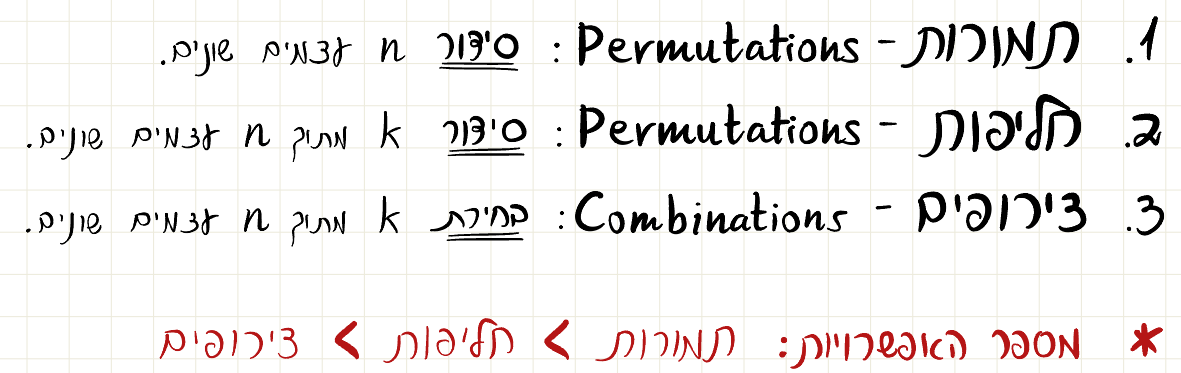 1. תמורות - Permutations : סידור n עצמים שונים.
2. חליפות - Permutations : סידור k מתוך n עצמים שונים.
3. צירופים - Combinations : בחירת k מתוך n עצמים שונים.
* מספר האפשרויות: תמורות > חליפות > צירופים